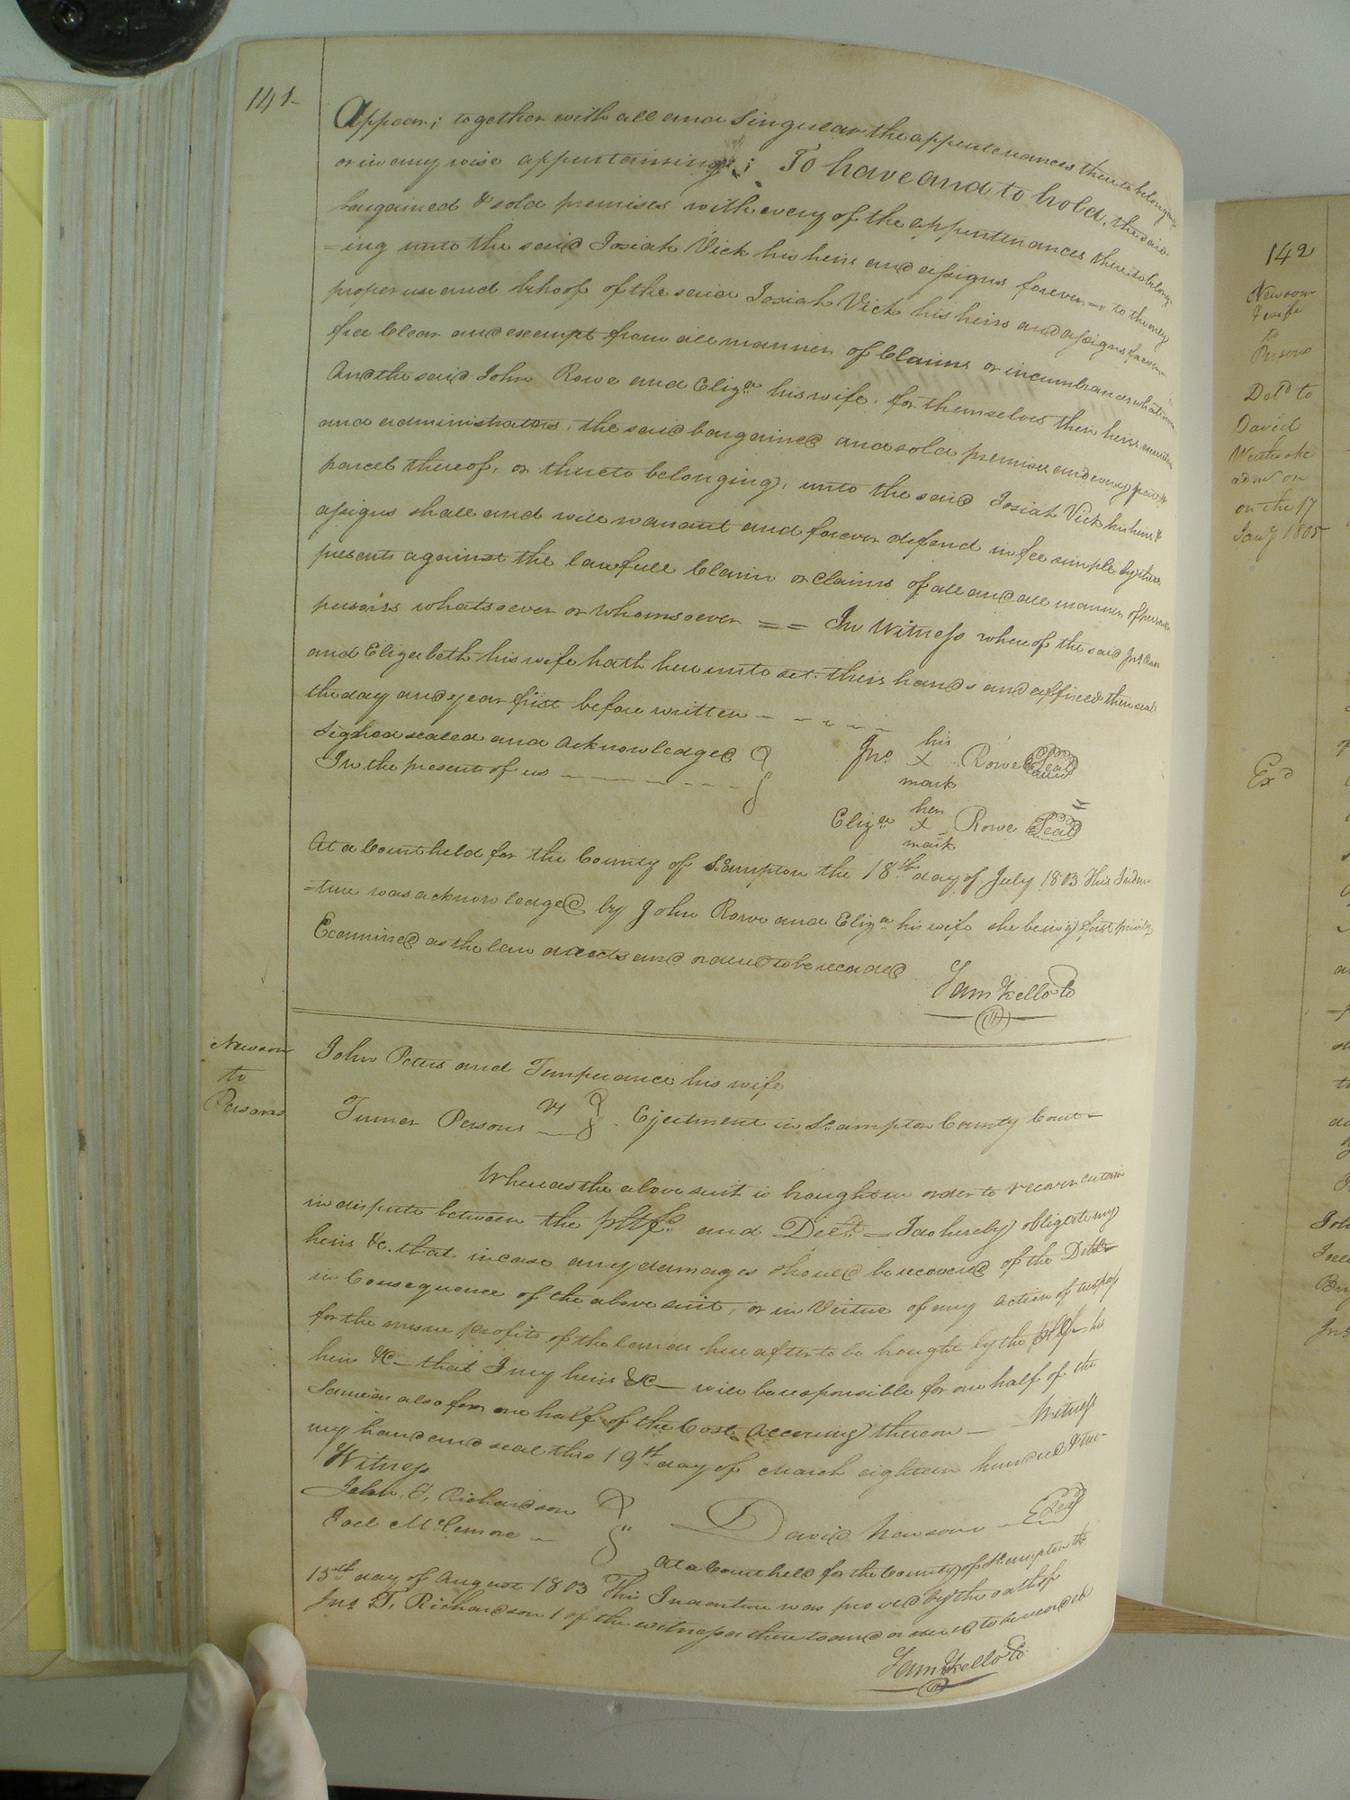 141
Appear; together with all and Singular the appurtenances thereto belonging
or in any wise appurtaining; To have and to hold, the said
bargained & sold premises with every of the appurtenances thereto belong
=ing unto the said Josiah Vick his heirs and assigns forever to the only
proper use and behoof of the said Josiah Vick his heirs and assigns forever
free clear and exempt from all manner of Claims or incumbrances whatsoever
And the said John Rowe and Eliza his wife for themselves their heirs executors
and administrators, the said bargained and sold premises and every part &
parcel thereof, or thereto belonging, unto the said Josiah Vick his heirs &
assigns shall and will warrant and forever defend in fee simple by these
presents against the lawfull Claim or Claims of all and all manner of person
persons whatsoever or whomsoever == In Witness whereof the said Jno Rowe
and Elizabeth his wife hath hereunto set their hands and affixed their seals
the day and year first before written
Signed sealed and acknowledged
In the present of us
Jno his X mark Rowe Seal
Eliza her X mark Rowe Seal
At a Court held for the County of S.ampton the 18th day of July 1803 This Inden
=ture was acknowledged by John Rowe and Eliza his wife she being first privily
Examined as the law directs and ordered to be recorded
Sam Kello Cl
Newsom
to
Persons
John Peters and Temperance his wife
vs
Turner Persons
Ejectment in So.ampton County Court
Whereas the above suit is brought in order to recover certain
in dispute between the pltffs and Deft = I do hereby obligate my
heirs &c. that in case any damages should be recovered of the Deft
in Consequence of the above suit, or in Virtue of any action of trespass
for the mesne profits of the lands here after to be brought by the pltffs his
heirs &c - that I my heirs &c - will be responsible for one half of the
Same as also for one half of the Cost Accruing thereon - Witness
my hand and seal this 19th day of March eighteen hundred &
Witness
John T. Richardson
Joel McLemore
David Newsom Seal
At a Court held for the County of So.ampton the
15th day of August 1803 This Indenture was proved by the oath of
Jno T. Richardson 1 of the witnesses thereto and ordered to be recorded
Sam Kello Cl
142
Newsom
& wife
to
Persons
Deld to
David
Westbrooke
admr on
on the 17
Jany 1805
Exd